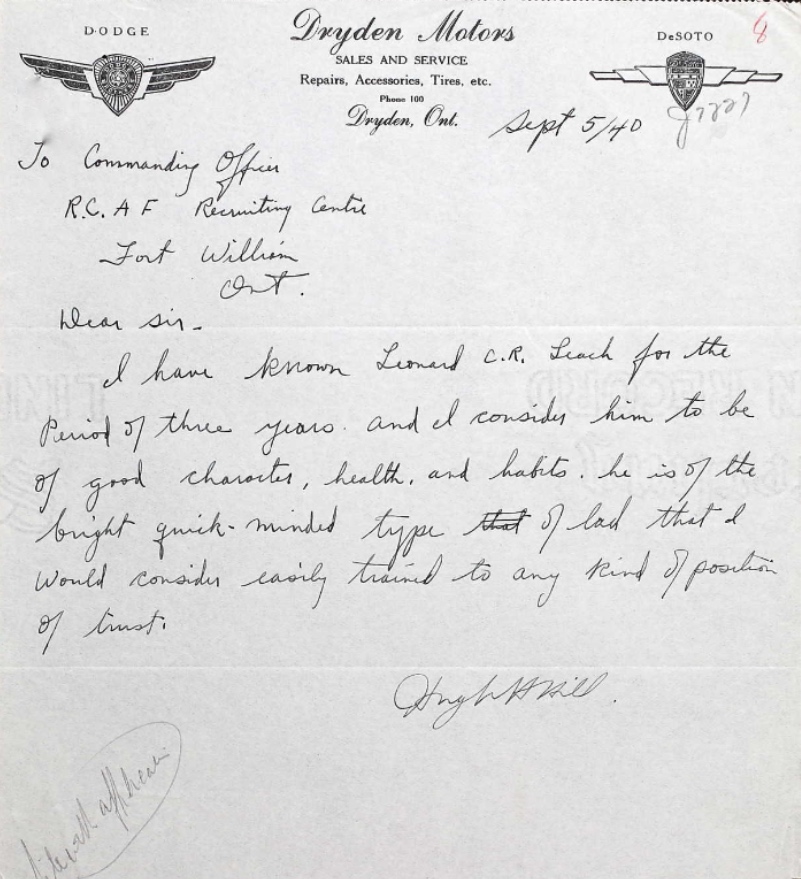 DODGE
Dryden Motors
DeSOTO
8
SALES AND SERVICE
Repairs, Accessories, Tires, etc.
Phone 100
Dryden, Ont.
Sept 5/40
To Commanding Officer
R.C.A F Recruiting Centre
Fort William
Ont.
Dear sir-
I have known Leonard C.R. Leach for the
Period of three years. and I consider him to be
of good character, health, and habits. he is of the
bright quick-minded type that of lad that I
would consider easily trained to any kind of position
of trust.
Hugh H Hill.